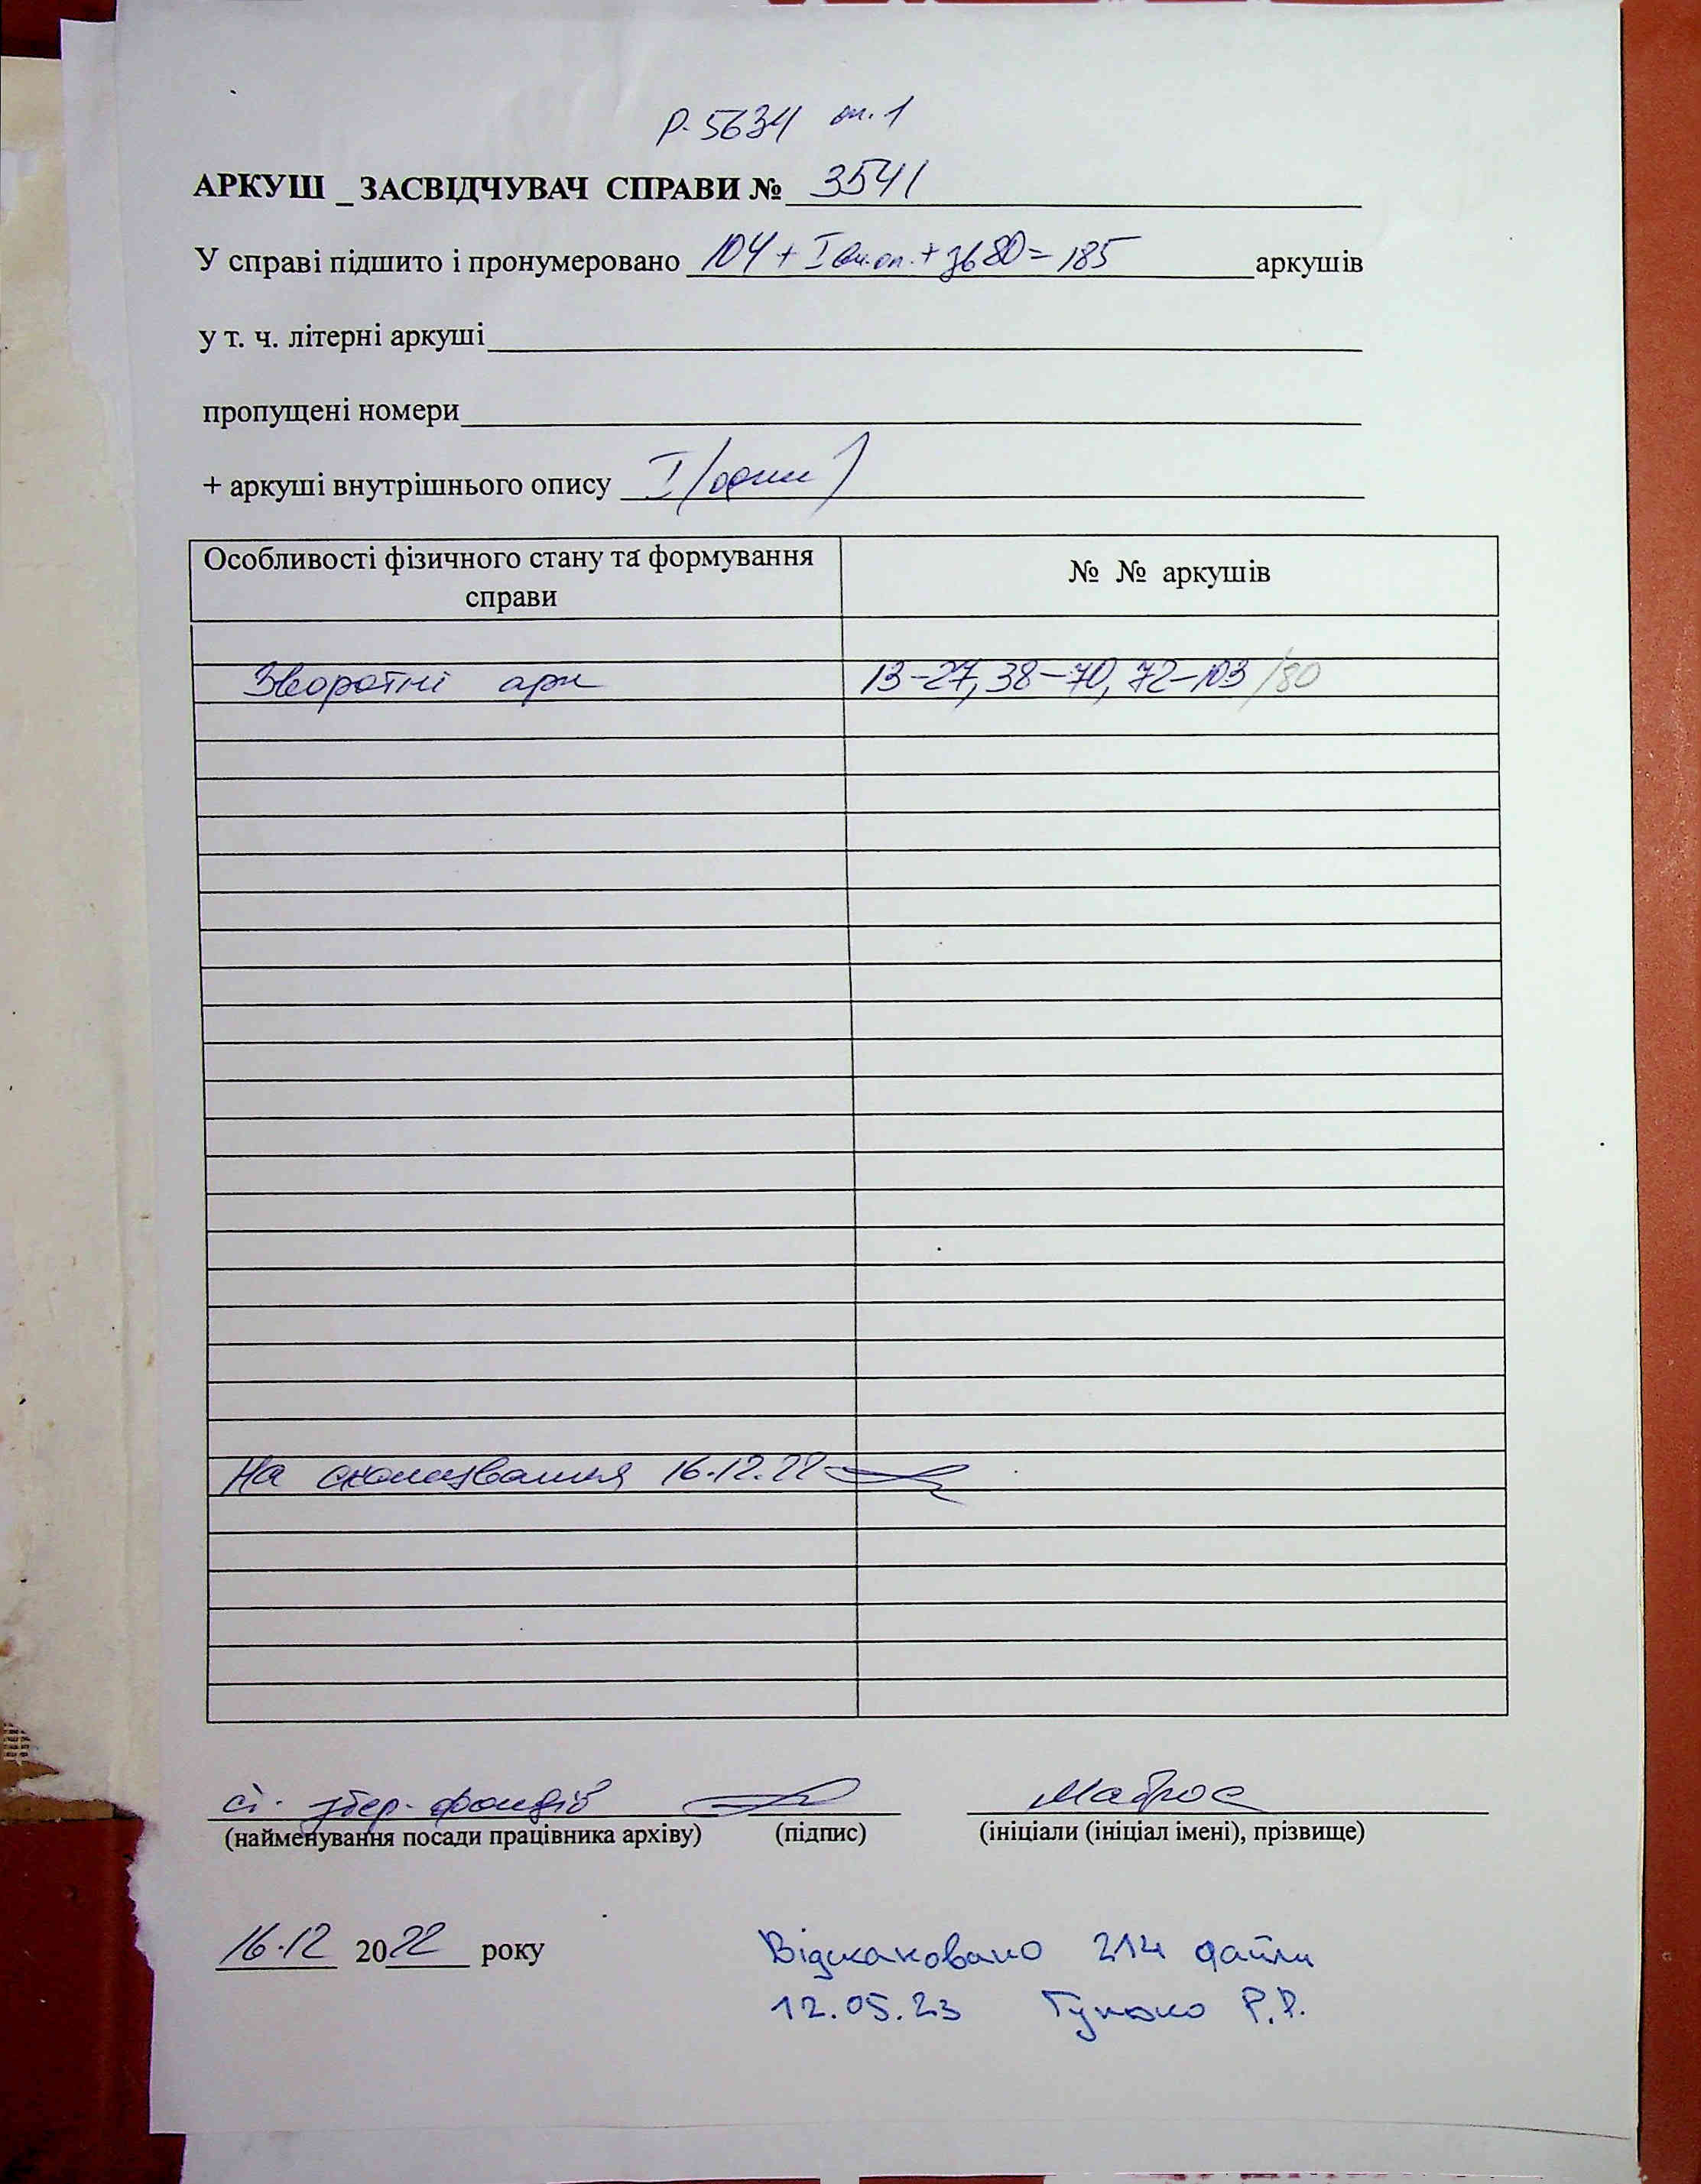 Р-5634 оп.1
АРКУШ _ ЗАСВІДЧУВАЧ СПРАВИ № 3541
У справі підшито і пронумеровано 104 + I вн.оп. + зв 80 = 185 аркушів
у т. ч. літерні аркуші
пропущені номери
+ аркуші внутрішнього опису I (один)
Особливості фізичного стану та формування справи
№ № аркушів
Зворотні арк 13-27, 38-70, 72-103 /80
На сканування 16.12.22
збер. фондів Матрос
(найменування посади працівника архіву) (підпис) (ініціали (ініціал імені), прізвище)
16.12 2022 року
Відскановано 214 файли
12.05.23 Р.Р.